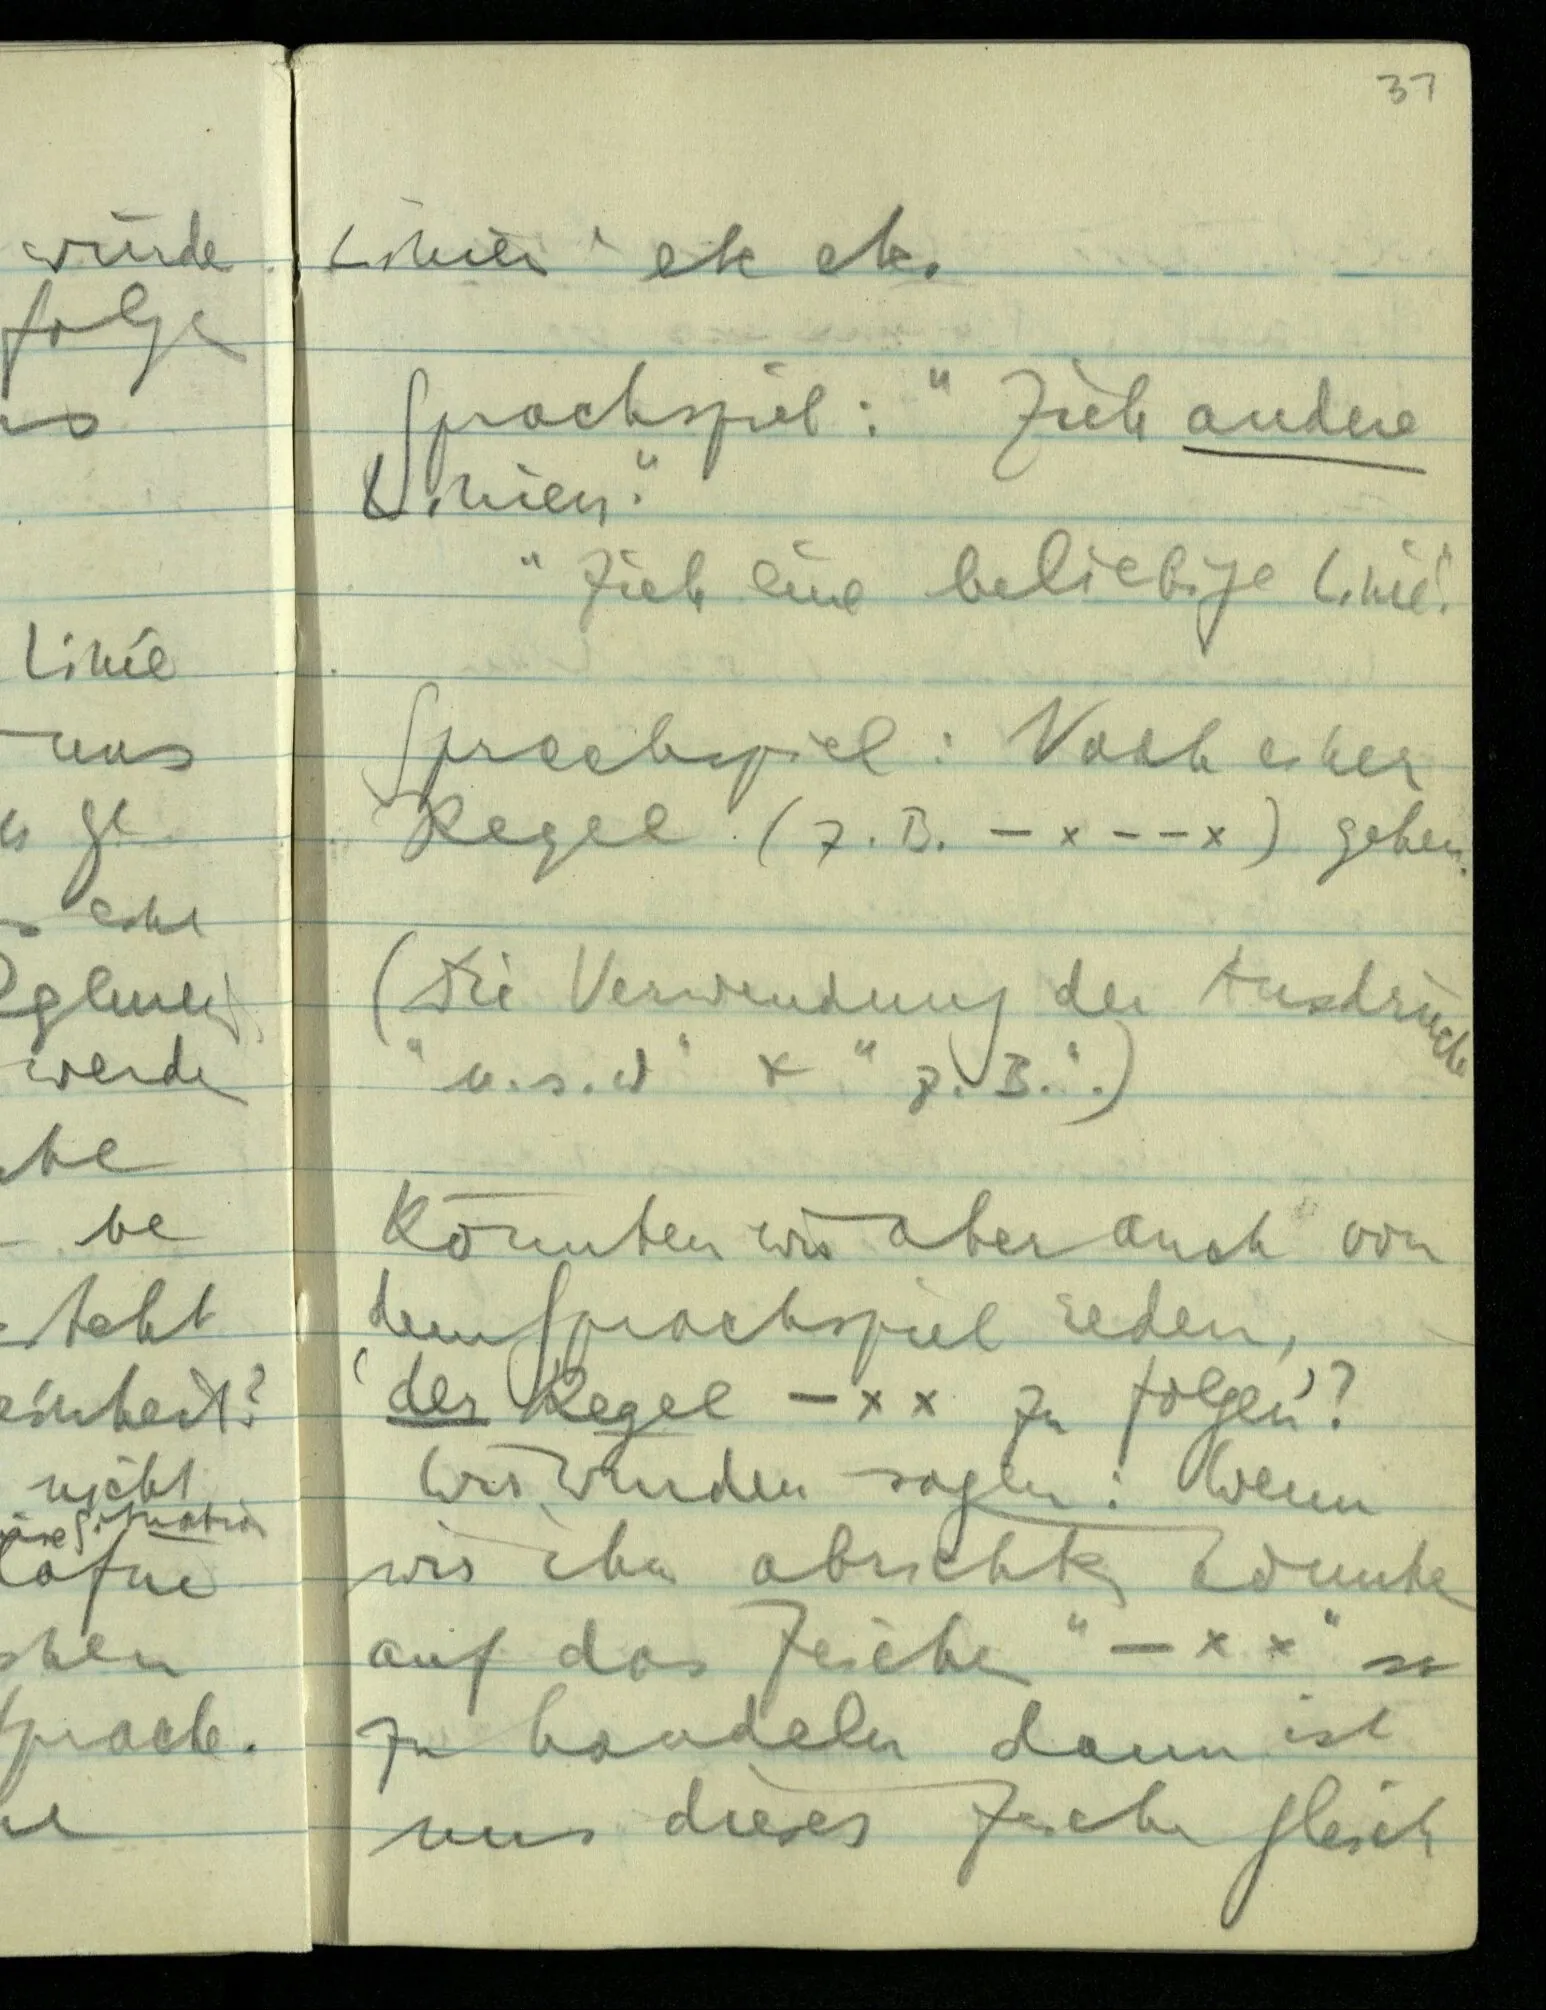 37
würde
folge
Linie
uns
ge
eine
werde
be
steht
nicht
Situation
Sprache.
Linien' etc etc.
Sprachspiel: "Zieh andere
Linien."
"Zieh eine beliebige Linie".
Sprachspiel: Nach einer
Regel (z.B. – x – – x) gehen.
(Die Verwendung der Ausdrücke
"u.s.w" & "z.B.".)
Könnten wir aber auch von
dem Sprachspiel reden,
'der Regel – x x zu folgen'?
Wir würden sagen: Wenn
wir ihn abrichten könnten
auf das Zeichen "– x x" so
zu handeln dann ist
uns dieses Zeichen gleich